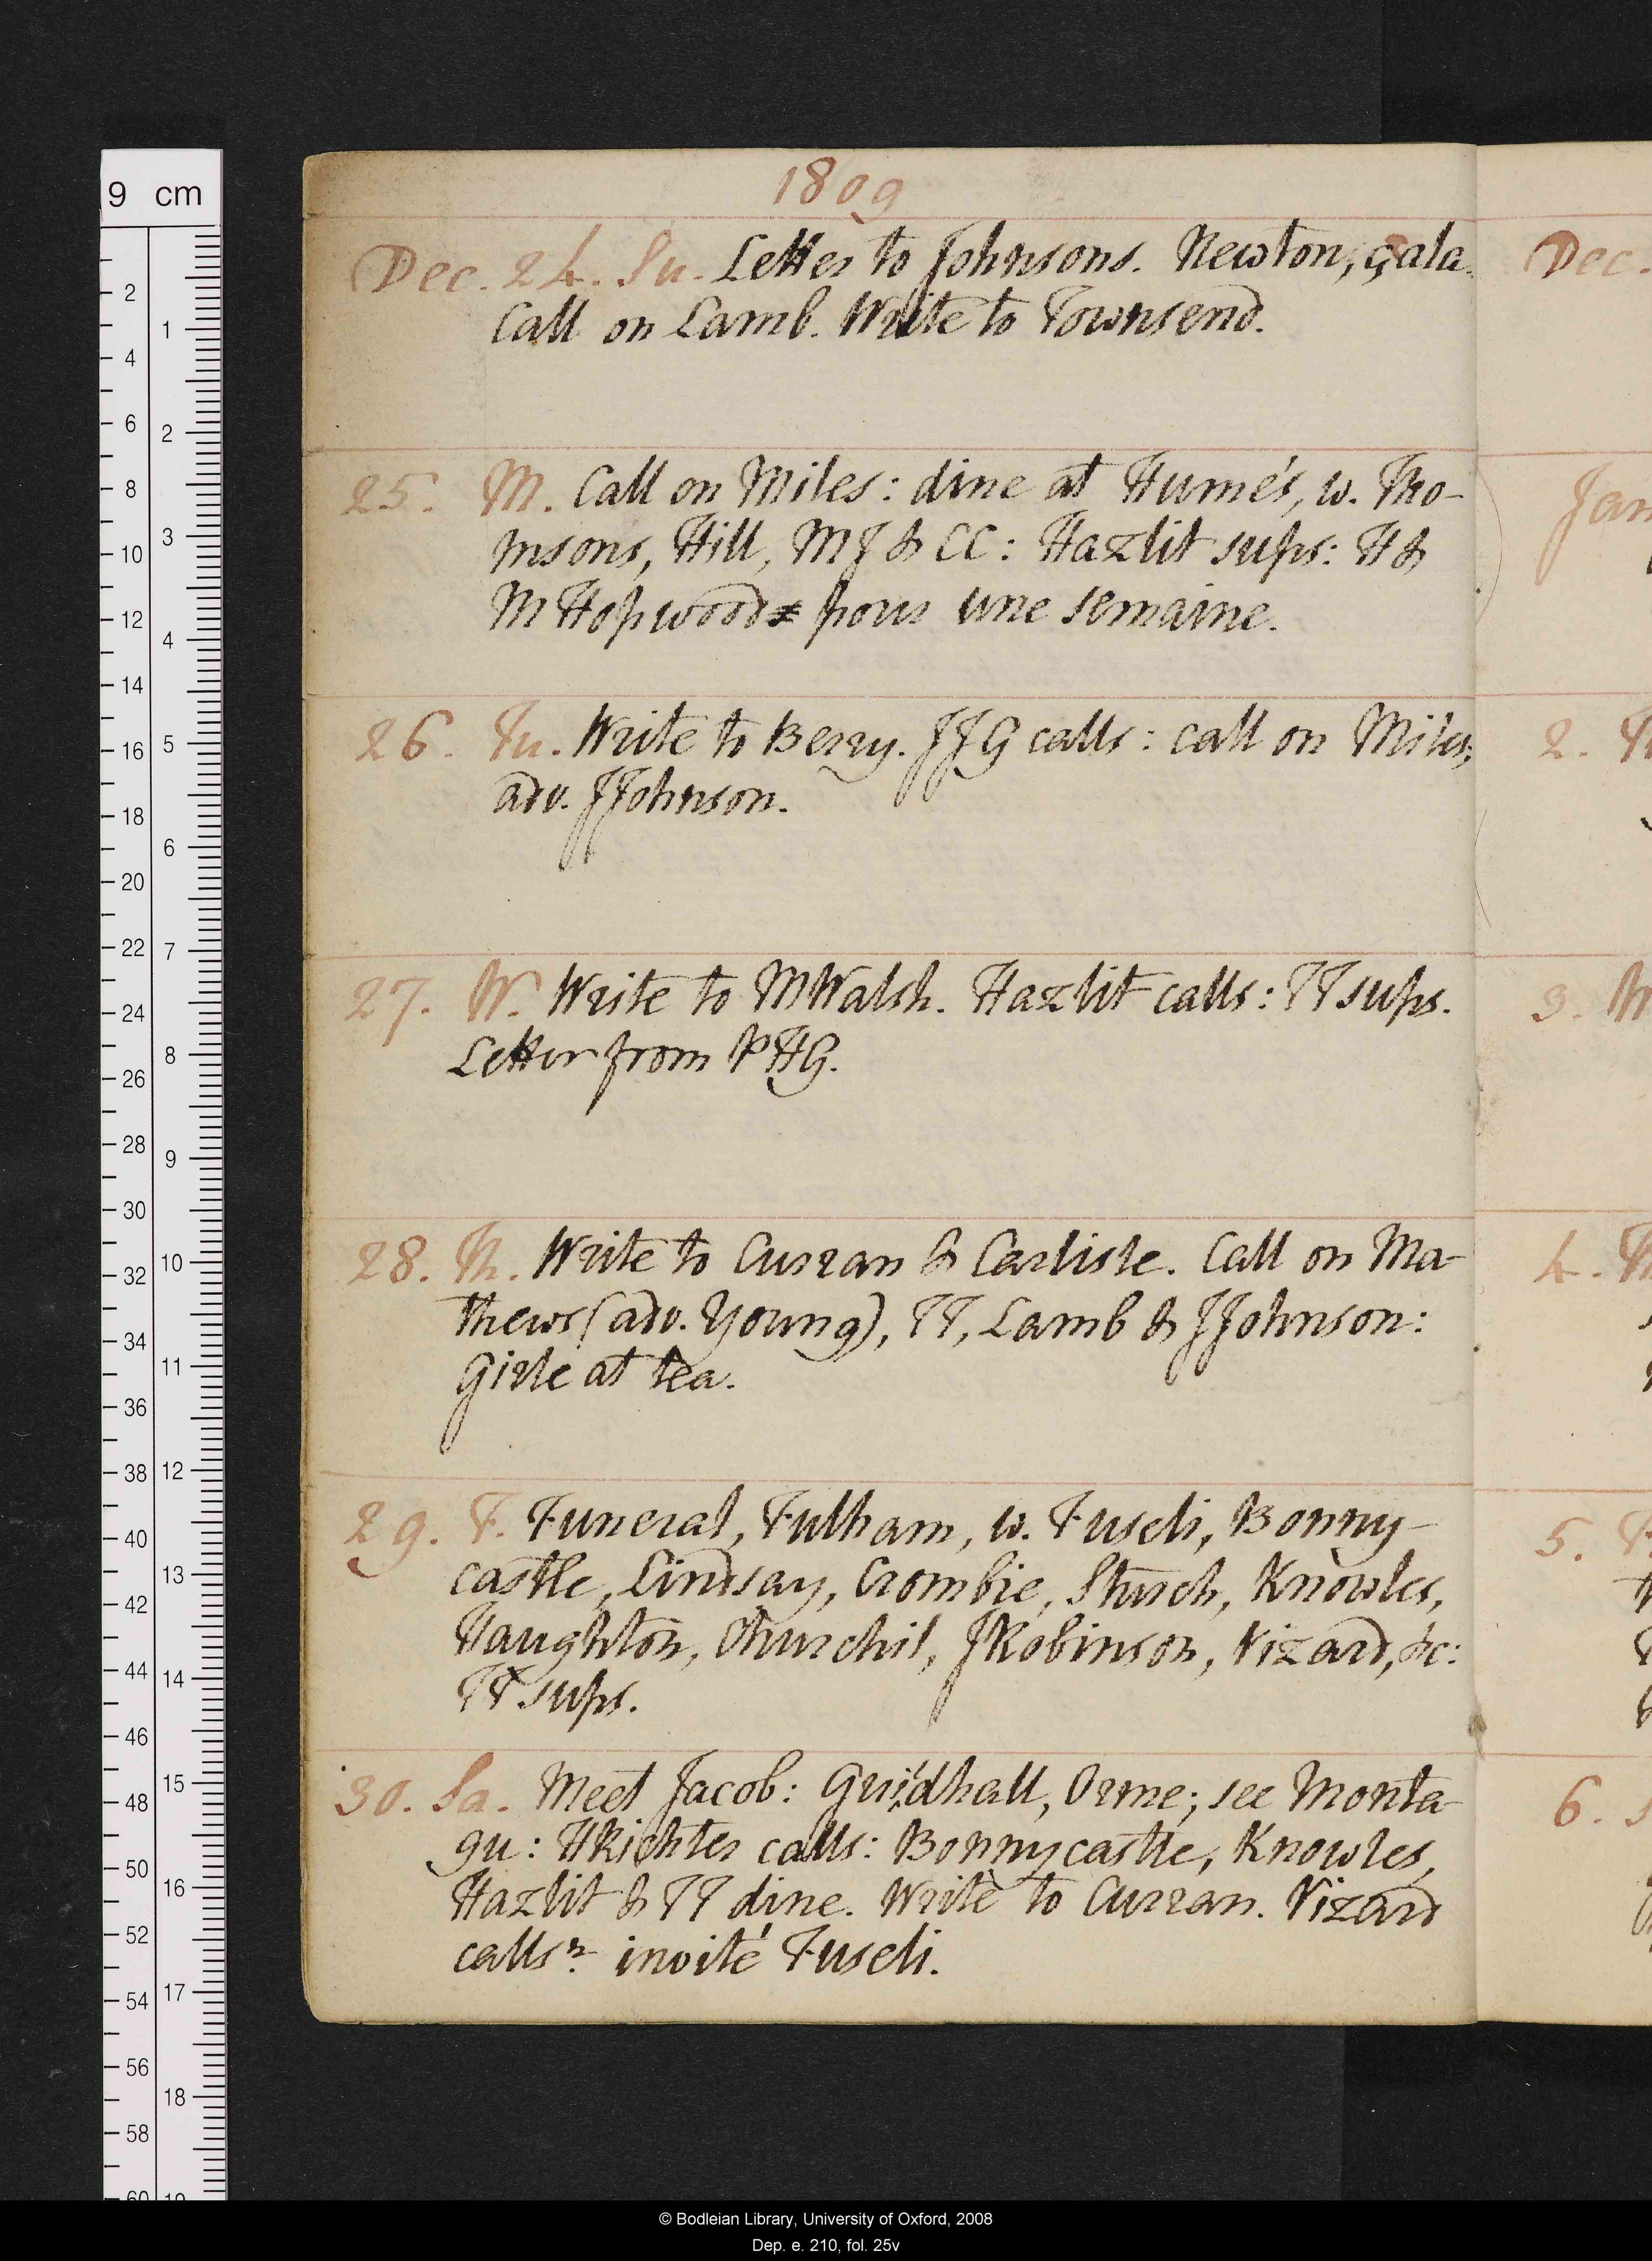 1809
Dec. 24. Su. Letter to Johnsons. Newton, çala.
Call on Lamb. Write to Townsend.
25. M. Call on Miles: dine at Hume's, w. Tho-
msons, Hill, MJ & CC: Hazlit sups: H &
M Hopwood pour une semaine.
26. Tu. Write to Berry. JJG calls: call on Miles;
adv. JJohnson.
27. W. Write to MWalsh. Hazlit calls: TT sups.
Letter from PHG.
28. Th. Write to Curran & Carlisle. Call on Ma-
thews (adv. Young), TT, Lamb & JJohnson:
Girle at tea.
29. F. Funeral, Fulham, w. Fuseli, Bonny-
castle, Lindsay, Crombie, Sturch, Knowles,
Haughton, Churchil, JRobinson, Vizard, &c:
TT sups.
30. Sa. Meet Jacob: Guildhall, Orme; see Monta-
gu: HRichter calls: Bonnycastle, Knowles,
Hazlit & TT dine. Write to Curran. Vizard
calls n invité Fuseli.
Dec.
Jan
2.
3.
4.
5.
6.
9 cm
2 4 6 8 10 12 14 16 18 20 22 24 26 28 30 32 34 36 38 40 42 44 46 48 50 52 54 56 58 60
1 2 3 4 5 6 7 8 9 10 11 12 13 14 15 16 17 18 19
© Bodleian Library, University of Oxford, 2008
Dep. e. 210, fol. 25v